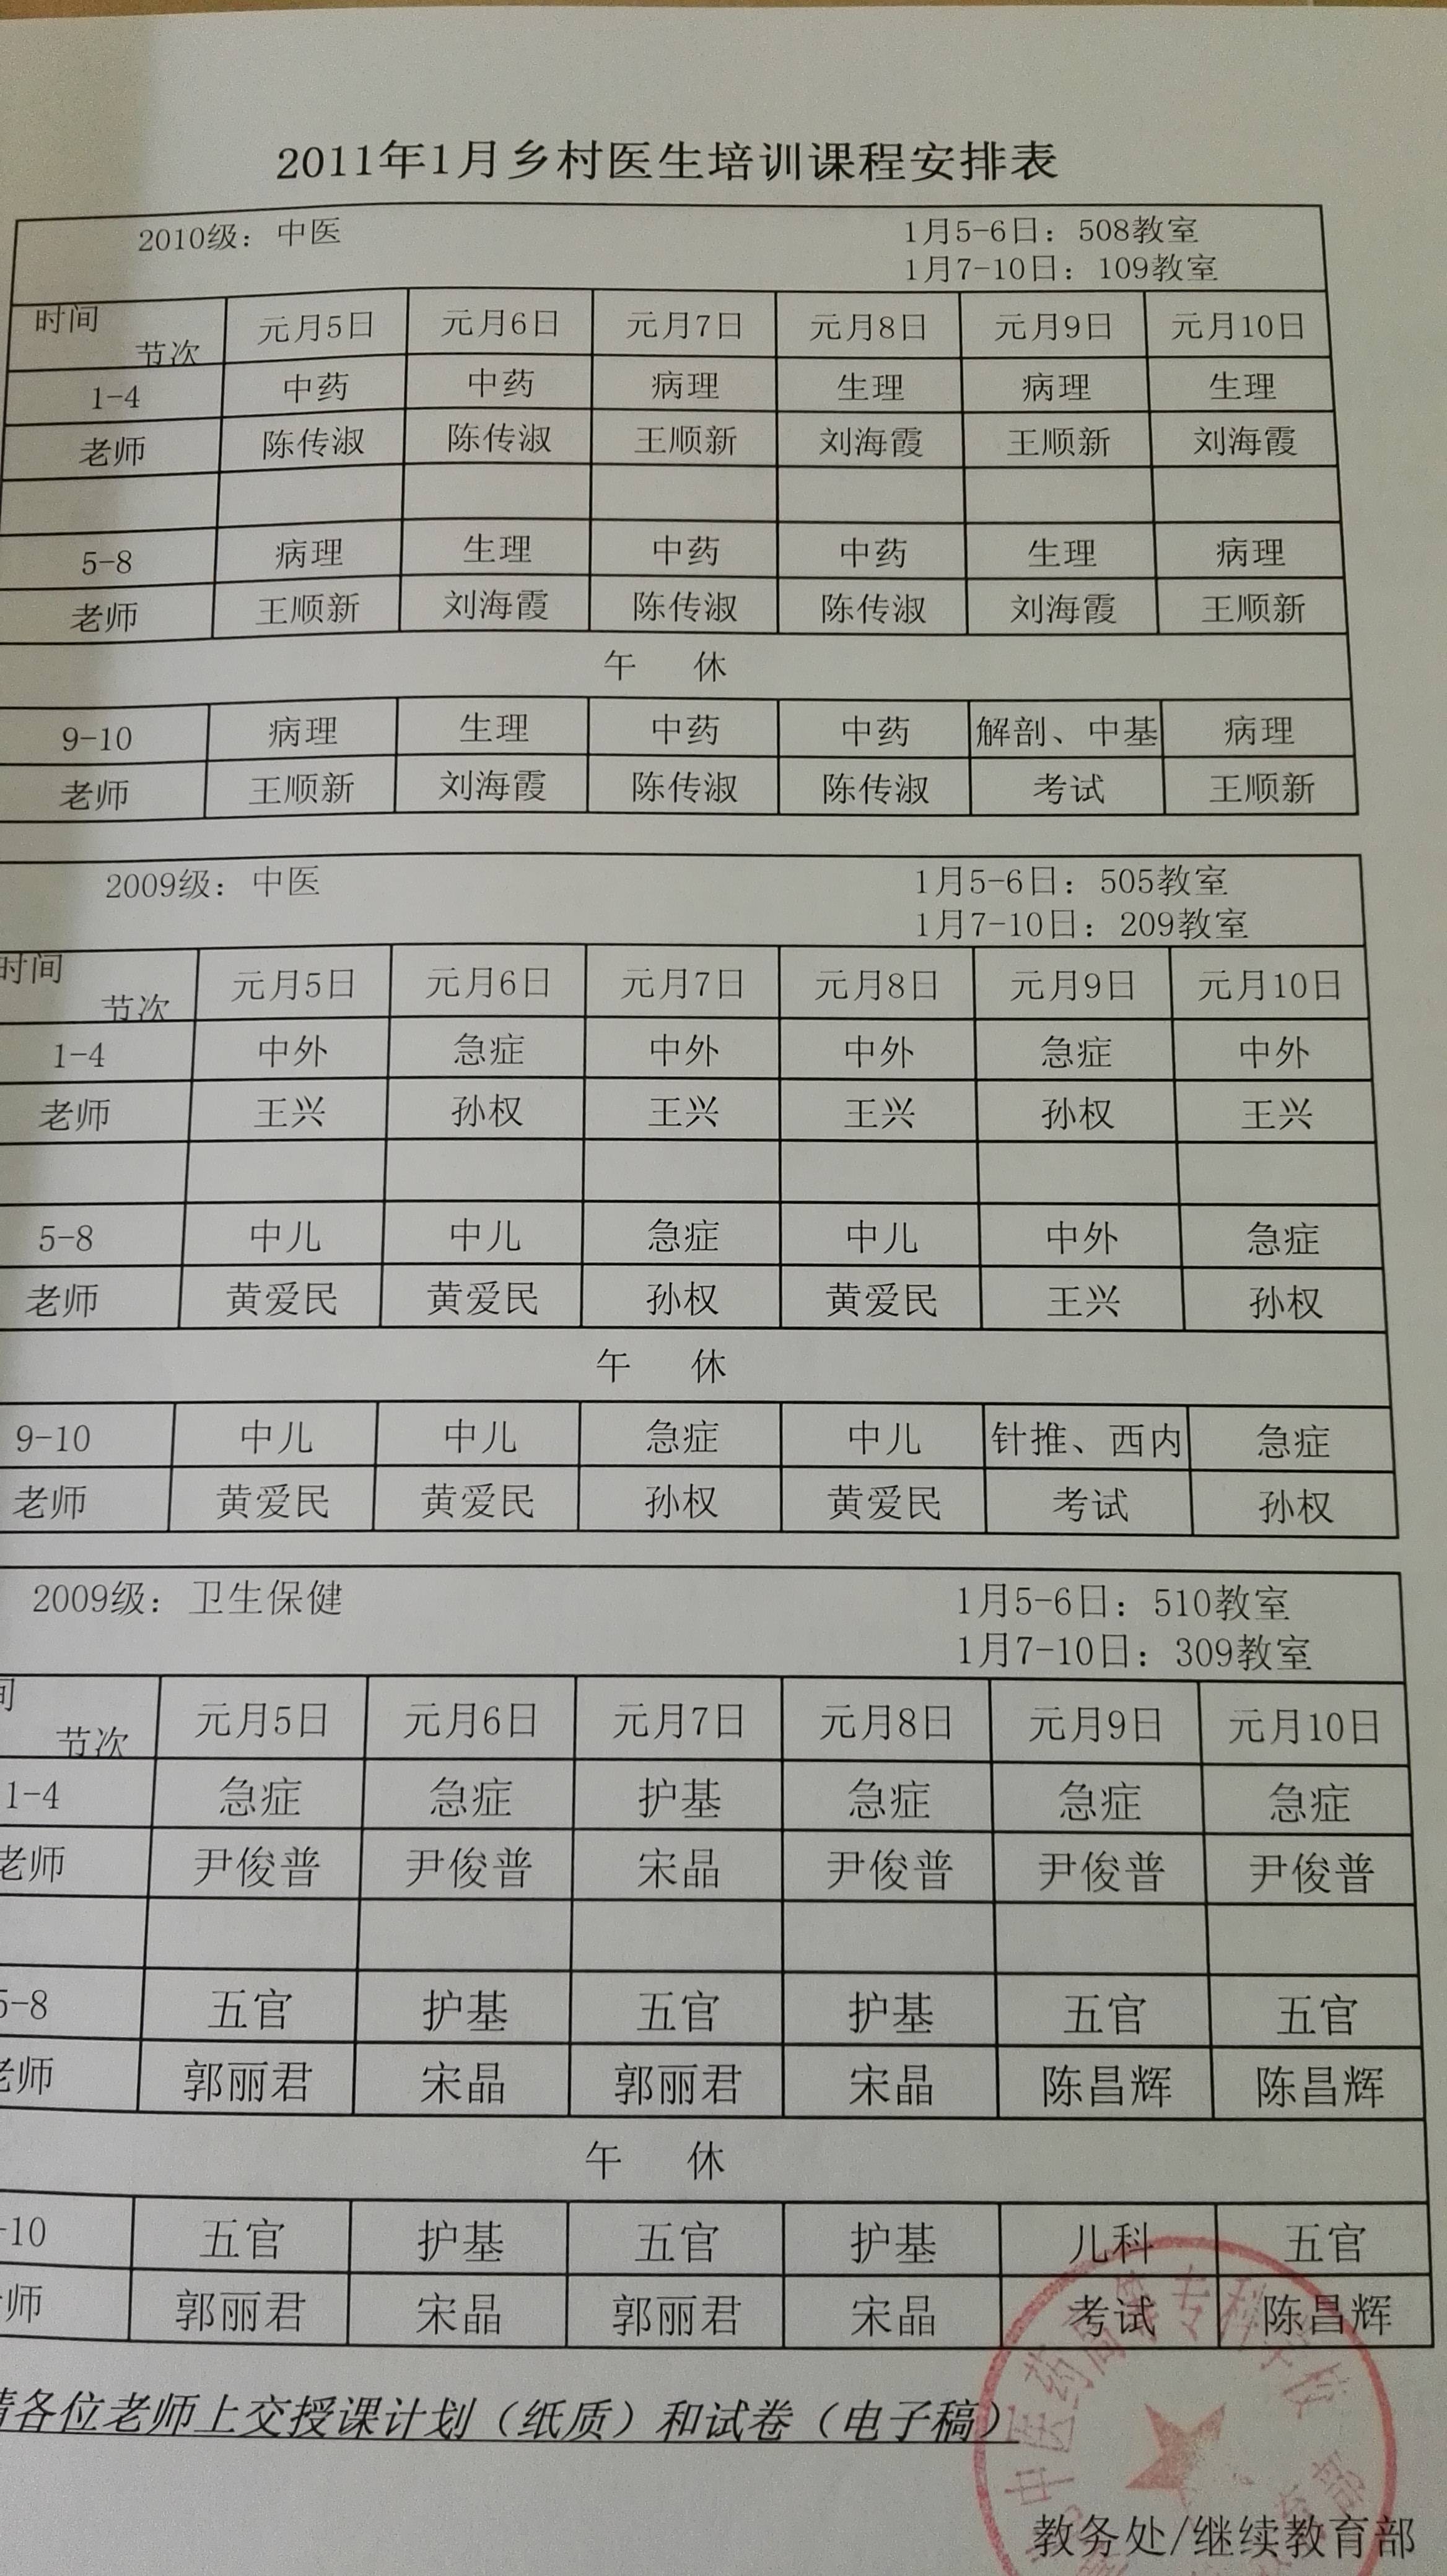 2011年1月乡村医生培训课程安排表
2010级：中医 1月5-6日：508教室
1月7-10日：109教室
时间 节次 元月5日 元月6日 元月7日 元月8日 元月9日 元月10日
1-4 中药 中药 病理 生理 病理 生理
老师 陈传淑 陈传淑 王顺新 刘海霞 王顺新 刘海霞
5-8 病理 生理 中药 中药 生理 病理
老师 王顺新 刘海霞 陈传淑 陈传淑 刘海霞 王顺新
午 休
9-10 病理 生理 中药 中药 解剖、中基 病理
老师 王顺新 刘海霞 陈传淑 陈传淑 考试 王顺新
2009级：中医 1月5-6日：505教室
1月7-10日：209教室
时间 节次 元月5日 元月6日 元月7日 元月8日 元月9日 元月10日
1-4 中外 急症 中外 中外 急症 中外
老师 王兴 孙权 王兴 王兴 孙权 王兴
5-8 中儿 中儿 急症 中儿 中外 急症
老师 黄爱民 黄爱民 孙权 黄爱民 王兴 孙权
午 休
9-10 中儿 中儿 急症 中儿 针推、西内 急症
老师 黄爱民 黄爱民 孙权 黄爱民 考试 孙权
2009级：卫生保健 1月5-6日：510教室
1月7-10日：309教室
间 节次 元月5日 元月6日 元月7日 元月8日 元月9日 元月10日
1-4 急症 急症 护基 急症 急症 急症
老师 尹俊普 尹俊普 宋晶 尹俊普 尹俊普 尹俊普
5-8 五官 护基 五官 护基 五官 五官
老师 郭丽君 宋晶 郭丽君 宋晶 陈昌辉 陈昌辉
午 休
-10 五官 护基 五官 护基 儿科 五官
师 郭丽君 宋晶 郭丽君 宋晶 考试 陈昌辉
请各位老师上交授课计划（纸质）和试卷（电子稿）
中医药高等专科学校
教务处/继续教育部